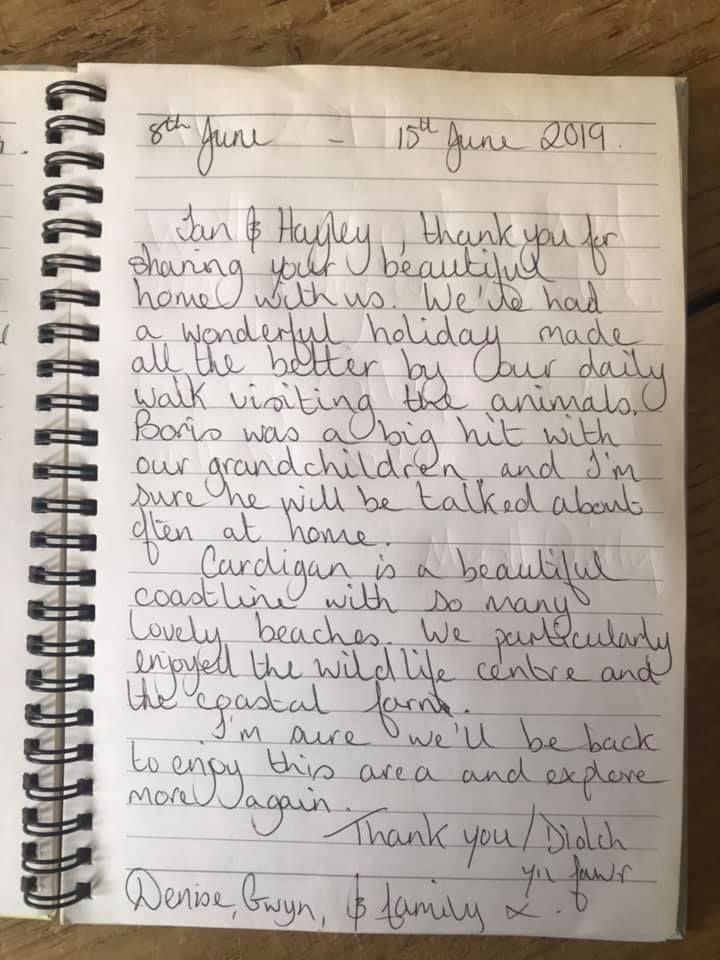 8th June - 15th June 2019.
Ian & Hayley, thank you for
sharing your beautiful
home with us. We've had
a wonderful holiday made
all the better by our daily
walk visiting the animals.
Boris was a big hit with
our grandchildren and I'm
sure he will be talked about
often at home.
Cardigan is a beautiful
coastline with so many
lovely beaches. We particularly
enjoyed the wildlife centre and
the coastal farm.
I'm sure we'll be back
to enjoy this area and explore
more again.
Thank you / Diolch
yn fawr
Denise, Gwyn, & family x.